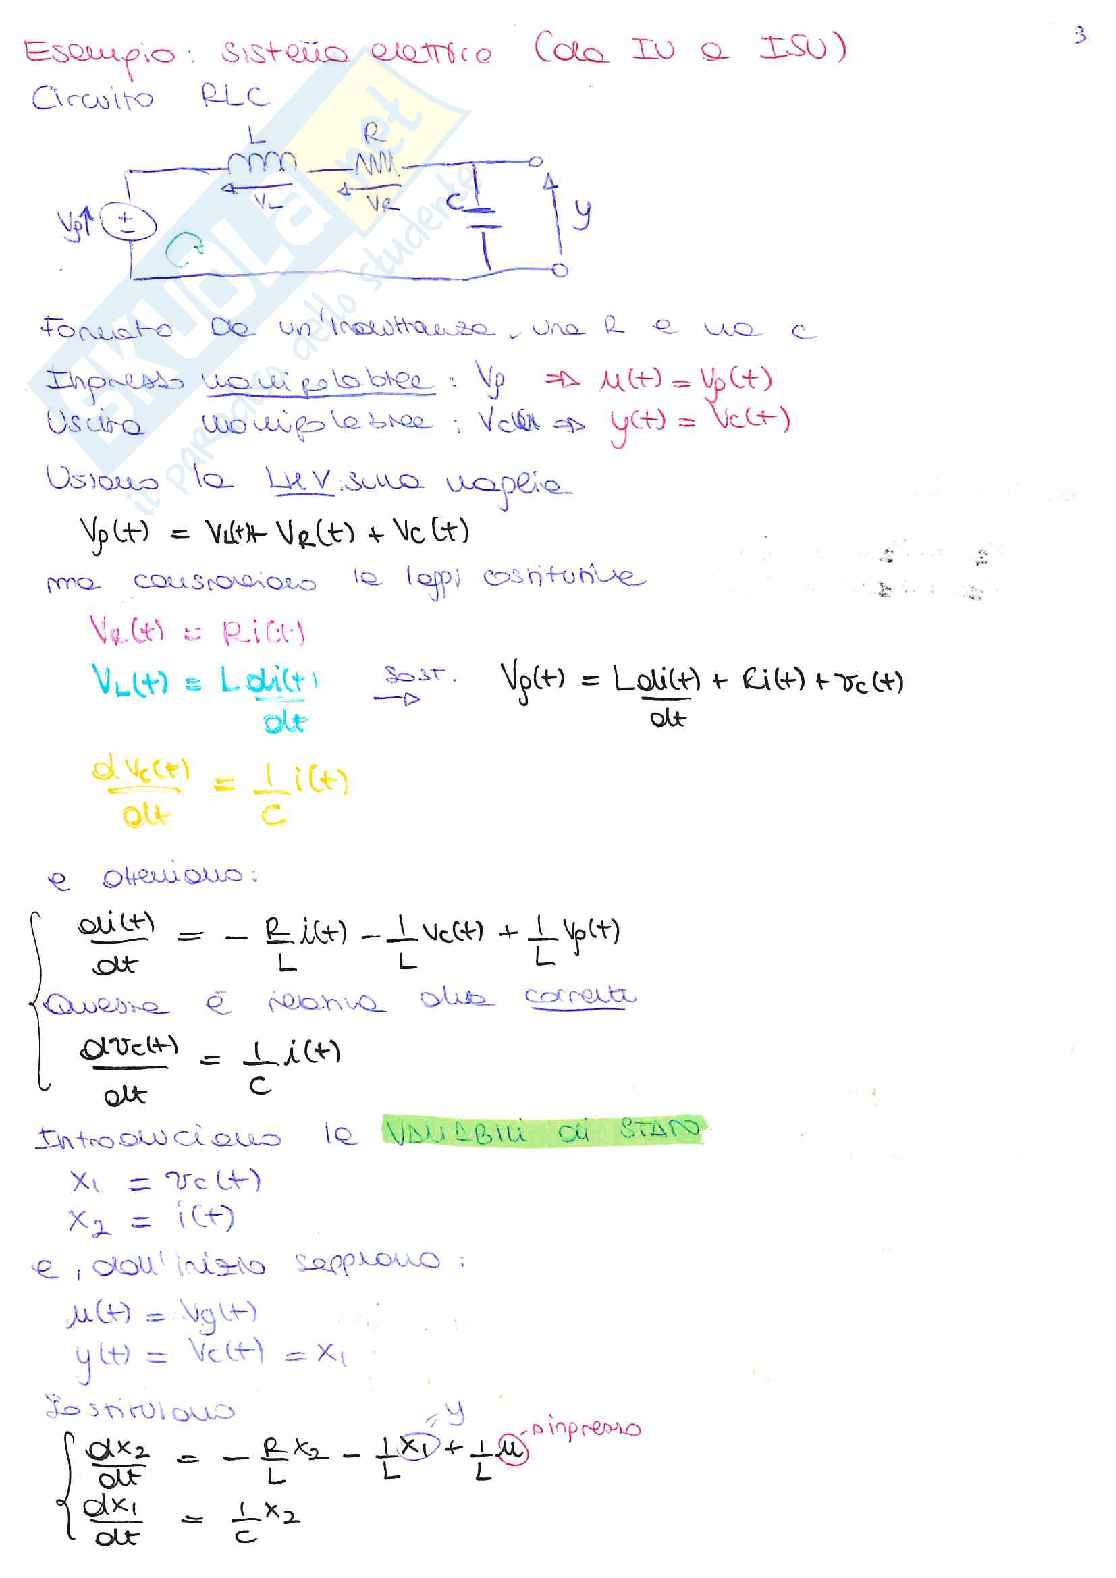 3
Esempio: sistema elettrico (da IU a ISU)
Circuito RLC
L R
VL VR C y
Vg
Formato da un'induttanza, una R e una C
Ingresso manipolabile: Vg ⇒ u(t) = Vg(t)
Uscita manipolabile: Vc ⇒ y(t) = Vc(t)
Usiamo la LKV sulla maglia
Vg(t) = VL(t) + VR(t) + Vc(t)
ma consideriamo le leggi costitutive
VR(t) = Ri(t)
VL(t) = L di(t)/dt sost. → Vg(t) = L di(t)/dt + Ri(t) + vc(t)
dVc(t)/dt = 1/C i(t)
e otteniamo:
di(t)/dt = - R/L i(t) - 1/L Vc(t) + 1/L Vg(t)
Questa è relativa alla corrente
dvc(t)/dt = 1/C i(t)
Introduciamo le VARIABILI di STATO
x1 = vc(t)
x2 = i(t)
e, dall'inizio sappiamo:
u(t) = Vg(t)
y(t) = Vc(t) = x1
Sostituiamo
= y
dx2/dt = - R/L x2 - 1/L x1 + 1/L u → ingresso
dx1/dt = 1/C x2
SKUOLA.net
il paradiso dello studente